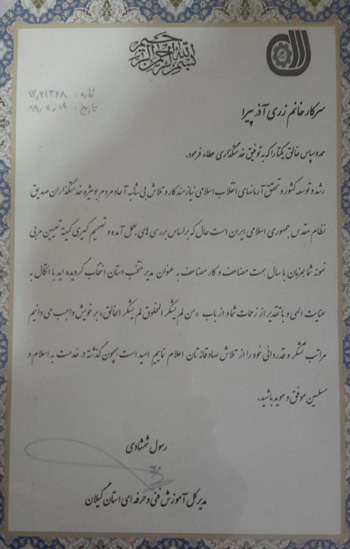 بسم الله الرحمن الرحیم
شماره:
تاریخ:
سرکار خانم زری آذر پیرا
حمد و سپاس خالق یکتا را که به توفیق خدمتگذاری عطاء فرمود.
رشد و توسعه کشور و تحقق آرمانهای انقلاب اسلامی نیازمند کار و تلاش بی شائبه آحاد مردم بویژه خدمتگذاران صدیق
نظام مقدس جمهوری اسلامی ایران است حال که بر اساس بررسی های بعمل آمده و تصمیم گیری کمیته تعیین مربی
نمونه شما همزمان با سال همت مضاعف و کار مضاعف به عنوان مدیر منتخب استان انتخاب گردیده اید با اتکال به
عنایت الهی و با تقدیر از زحمات شما و از باب «من لم یشکر المخلوق لم یشکر الخالق» بر خویش واجب می دانیم
مراتب تشکر و قدردانی خود را از تلاش صادقانه تان اعلام نماییم امید است بچون گذشته در خدمت به اسلام و
مسلمین موفق و موید باشید.
رسول شمشادی
مدیر کل آموزش فنی و حرفه ای استان گیلان